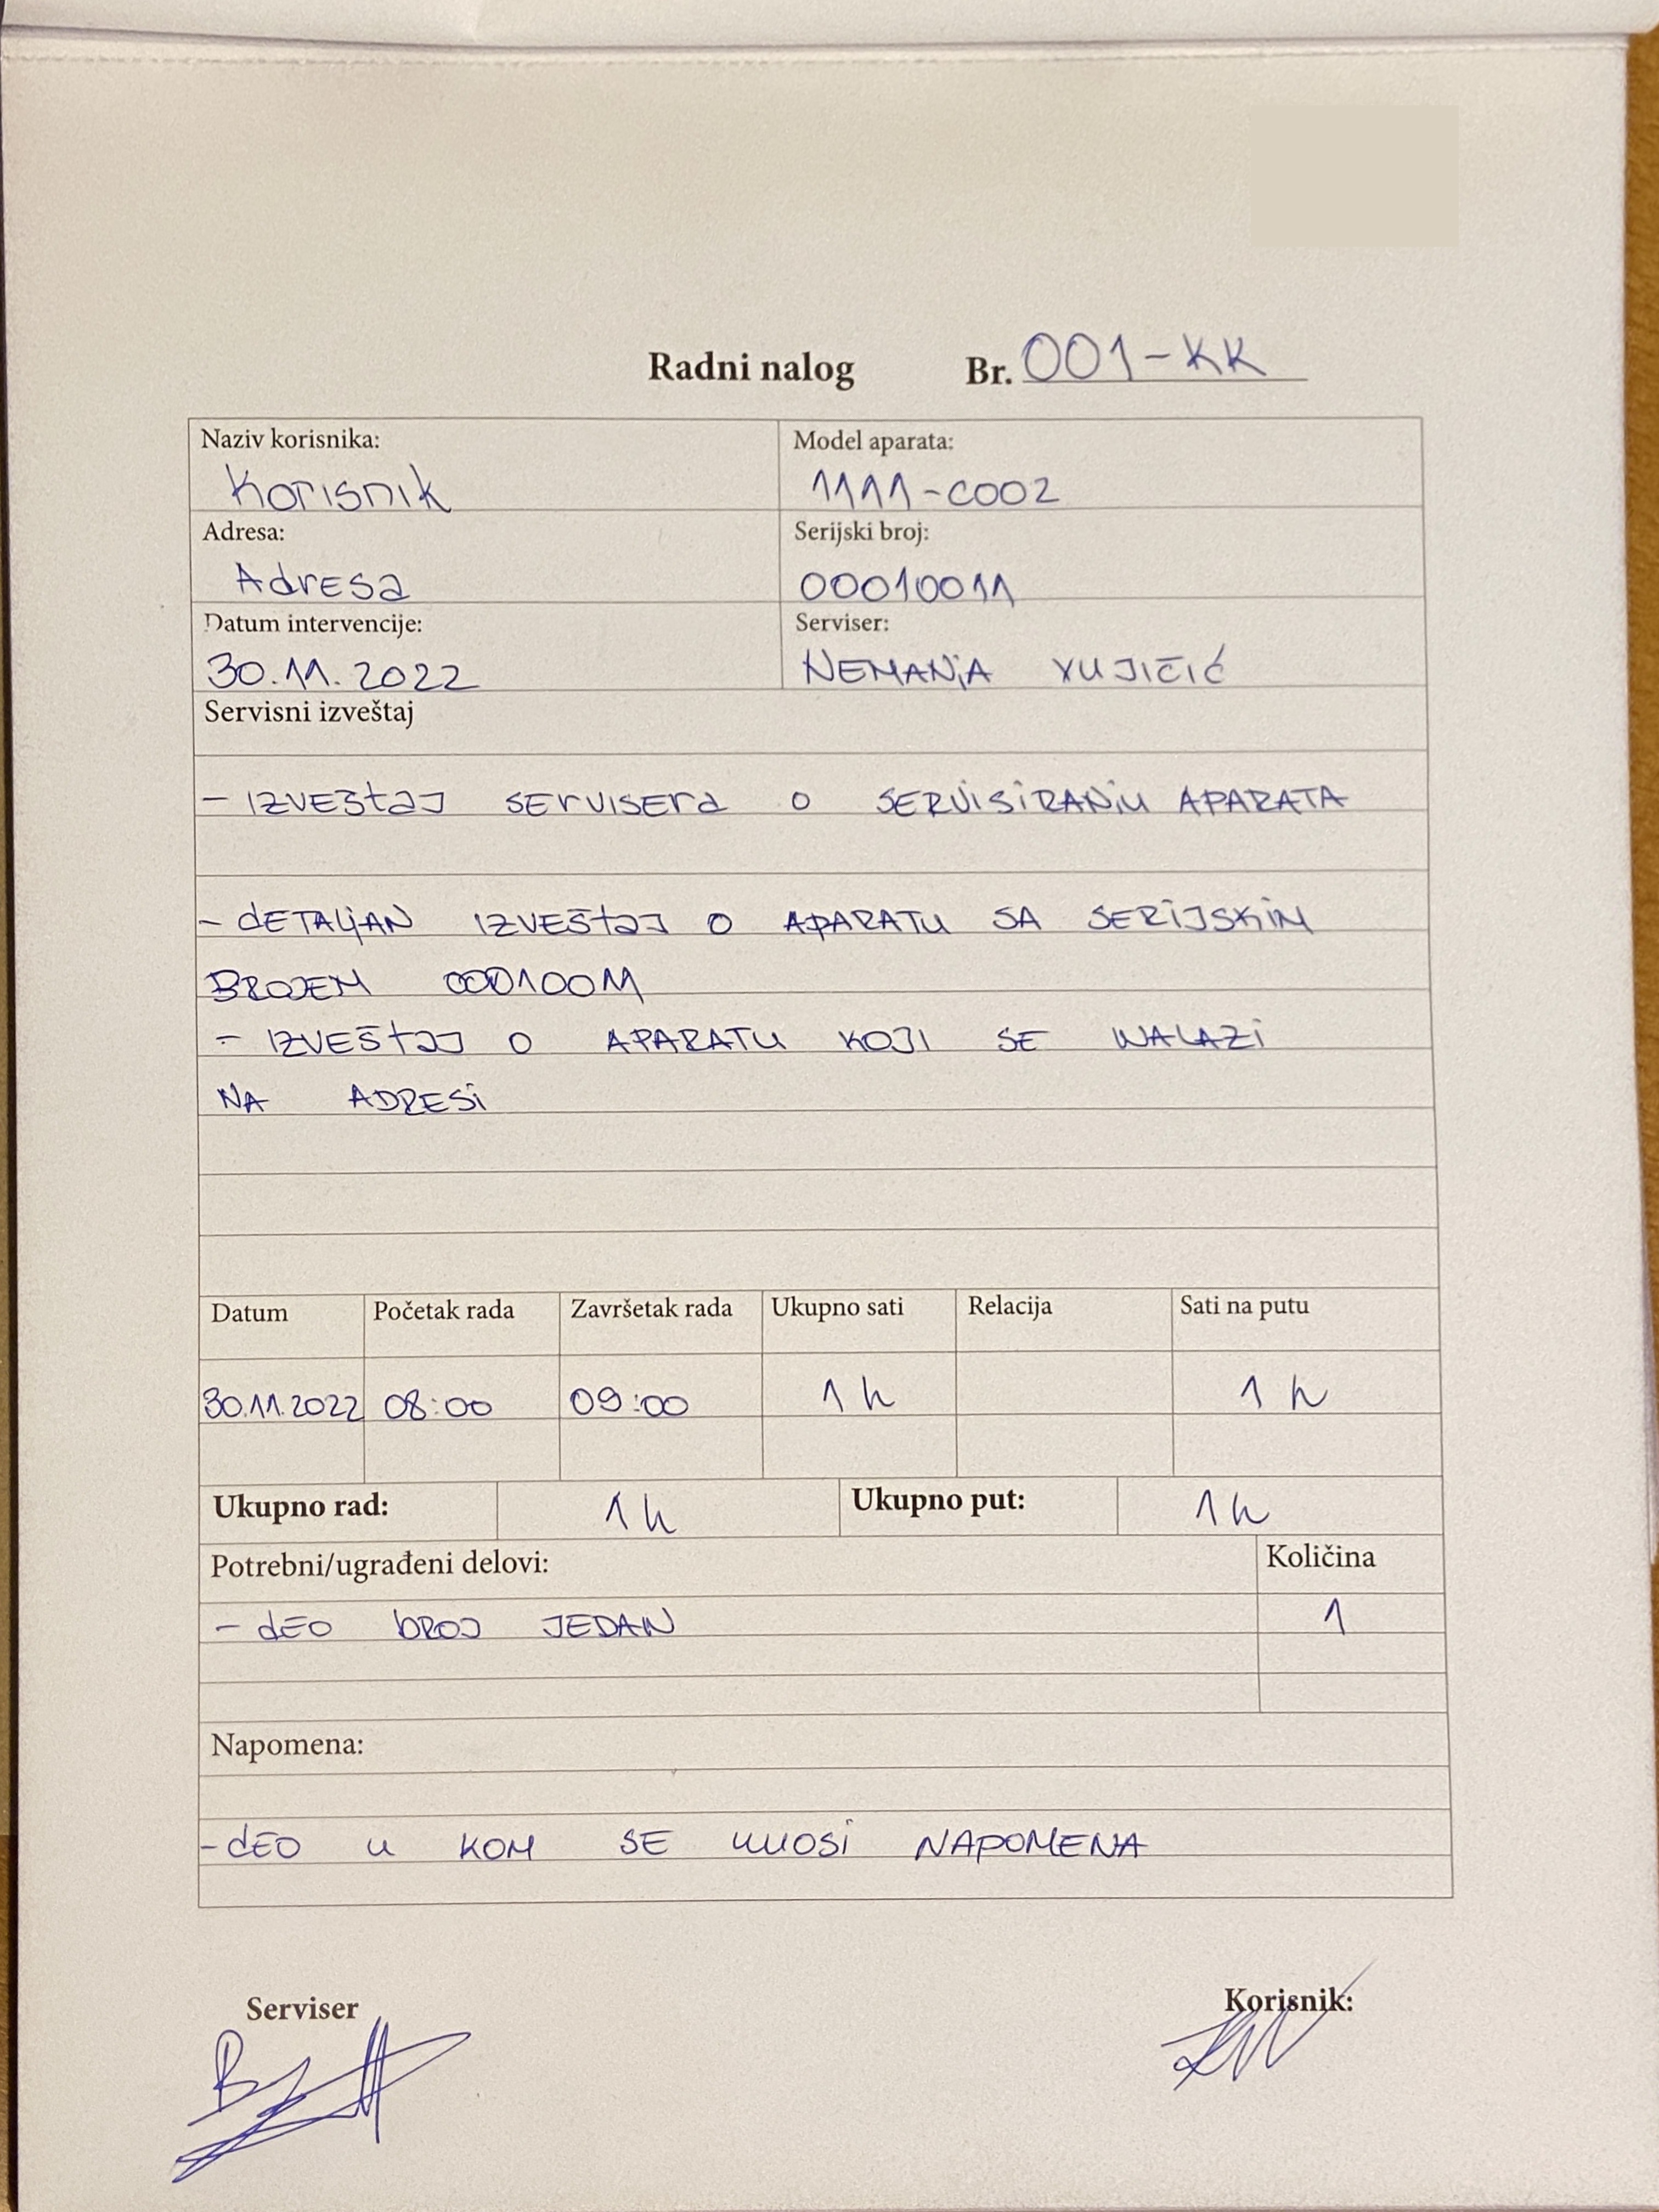 Radni nalog Br. 001-KK
Naziv korisnika: Model aparata:
Korisnik 1111-C002
Adresa: Serijski broj:
Adresa 00010011
Datum intervencije: Serviser:
30.11.2022 NEMANjA VUJIČIĆ
Servisni izveštaj
- IZVEŠtaJ SErVISEra O SERViSiRANjU APARATA
- dETALjAN IZVEŠtaJ O APARATU SA SERiJSKiM
BROJEM 00010011
- IZVEŠtaJ O APARATU KOJI SE NALAZi
NA ADRESi
Datum Početak rada Završetak rada Ukupno sati Relacija Sati na putu
30.11.2022 08:00 09:00 1 h 1 h
Ukupno rad: 1 h Ukupno put: 1 h
Potrebni/ugrađeni delovi: Količina
- dEO bROJ JEDAN 1
Napomena:
- dEO u KOM SE UNOSi NAPOMENA
Serviser Korisnik: